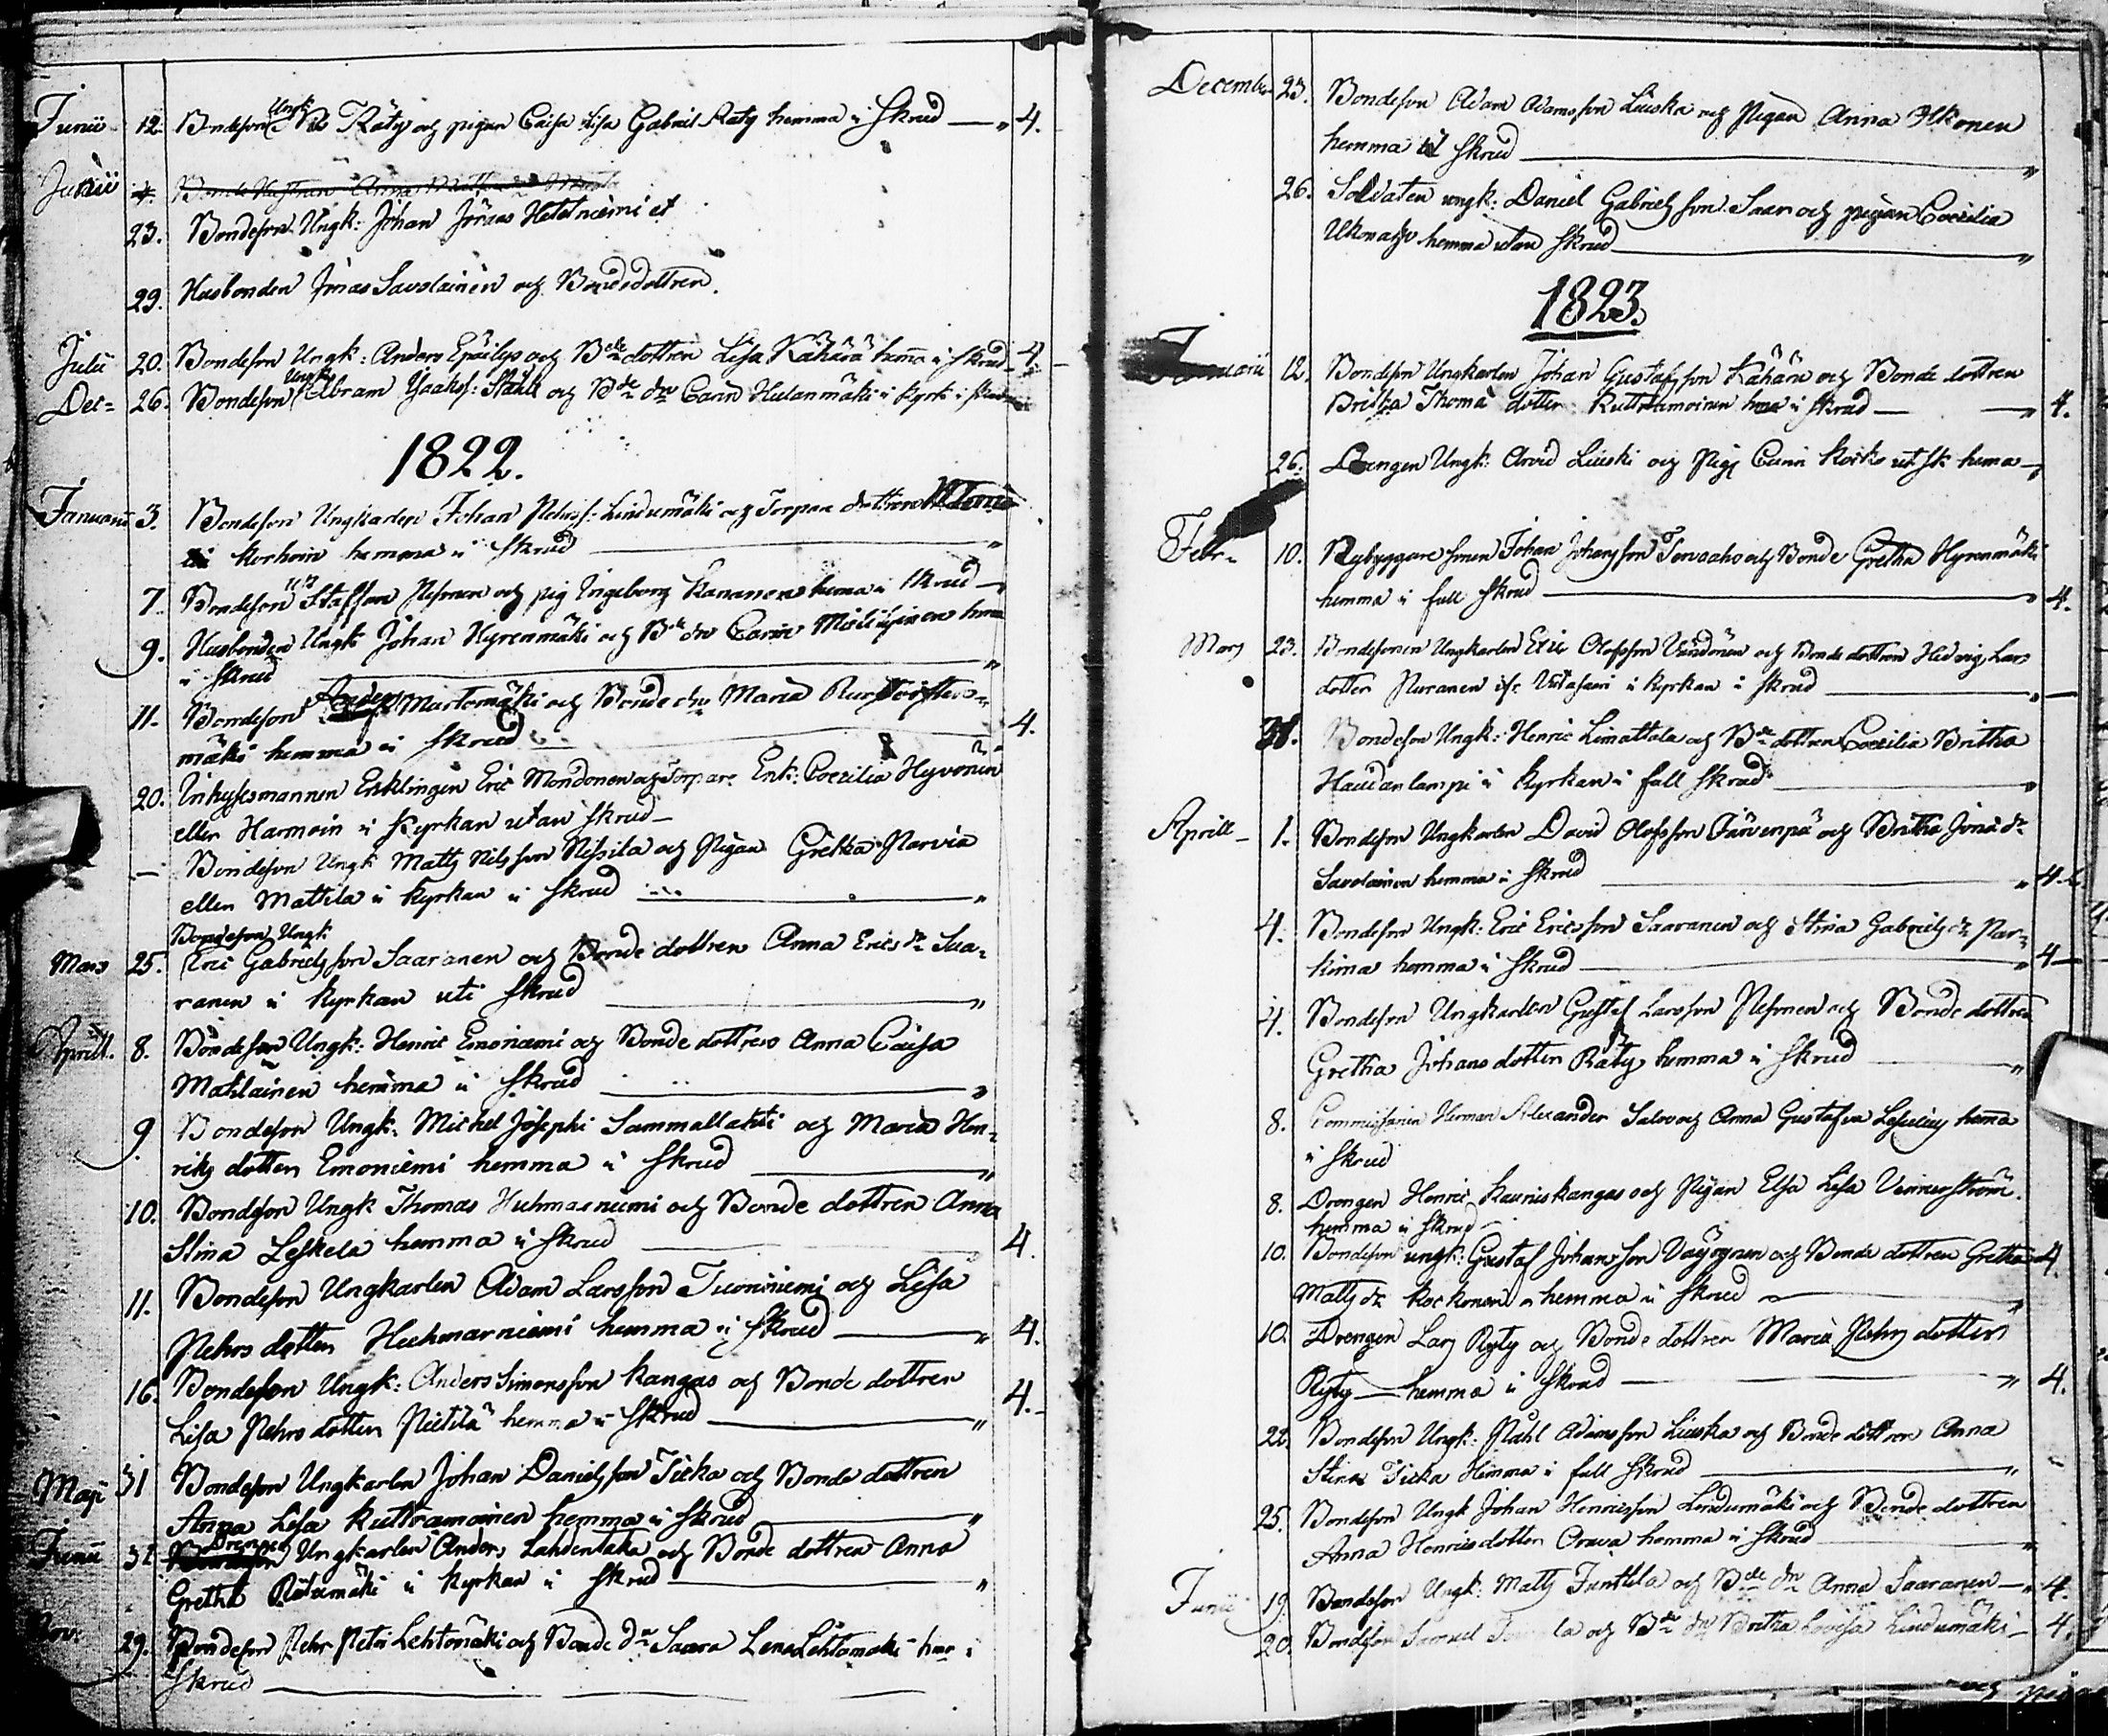 Junii 12. Bondeson Ungk: Nils Räty och pigan Caisa Lisa Gabriel Räty hemma i Skrud — " 4.
Junii
23. Bondeson Ungk: Johan Jonas Hetetniemi et
29. Husbonden Jonas Savolainen och Bondedottren.
Julii 20. Bondeson Ungk: Anders och Bde dottren Lisa Kähärä hema i skrud 4
Dec= 26. Bondeson Ungk Abram Jaakof: Ståhl och Bde dr Carin Hulanmäki i kyrk i
1822.
Januarii 3. Bondeson Ungkarlen Johan Pehrs: Lindumäki och Torpare dottren
korhoin hemma i Skrud "
7. Bondeson Staffan Pesonen och pig Ingeborg Kananen hema i Skrud
9. Husbonden Ungk Johan Hyrenmäki och Bde dr Carin hma
i Skrud "
11. Bondeson Anders Martomäki och Bonde dr Maria
mäki hemma i Skrud 4.
20. Inhysesmannen Enklingen Eric Mondonen och Torpare Enk: Coecilia Hyvönen
eller Harmoin i Kyrkan utan Skrud
— Bondeson Ungk Matts Nilsson Nissila och Pigan Gretha Narvia
eller Mattila i Kyrkan i Skrud "
Bondeson Ungk
Mars 25. Eric Gabrielsson Saaranen och Bonde dottren Anna Erics dr Saa-
ranen i Kyrkan uti Skrud "
Aprill. 8. Bondeson Ungk: Henric Emoniemi och Bonde dottren Anna Caisa
Matilainen hemma i Skrud "
9 Bondeson Ungk: Michel Josephi Sammallahti och Maria Hen-
riks dotter Emoniemi hemma i Skrud "
10. Bondeson Ungk Thomas Huhmarniemi och Bonde dottren Anna
Stina Leskela hemma i Skrud 4.
11. Bondeson Ungkarlen Adam Larsson Tuoniniemi och Lisa
Pehrs dotter Huhmarniemi hemma i Skrud " 4.
16. Bondeson Ungk: Anders Simonsson Kangas och Bonde dottren
Lisa Pehrs dotter Pietilä hemma i Skrud " 4.
Maji 31 Bondeson Ungkarlen Johan Danielsson Ticka och Bonde dottren
Anna Lisa Kuttramoinen hemma i Skrud "
Junii 31 Drengen Ungkarlen Anders Lahdentaka och Bonde dottren Anna
Gretha Rötumäki i Kyrkan i Skrud "
Nov: 29. Bondeson Pehr Petri Lehtomäki och Bonde dr Saara Lena Lehtomäki hm i
Skrud
December 23. Bondeson Adam Adamsson Liuska och Pigan Anna Ilkonen
hemma ut Skrud "
26. Soldaten ungk: Daniel Gabrielsson Saar och pigan Coecilia
hemma utan Skrud "
1823.
Januarii 12. Bondeson Ungkarlen Johan Gustafsson Kähärä och Bonde dottren
Britha Thoma dotter Kuttramoinen hma i Skrud " 4.
26. Drengen Ungk: Arvid Liuski och Pig Carin Koski ut Sk hema
Febr. 10. Nybyggare sonen Johan Johansson Tervaaho och Bonde Gretha Hyrenmäki
hemma i full Skrud " 4.
Mars 23. Bondesonen Ungkarlen Eric Olofsson Väudönen och Bonde dottren Hedvig Lars
dotter Puranen ifr. i Kyrkan i Skrud "
31. Bondeson Ungk: Henric Limattala och Bde dottren Coecilia Britha
Haudanlampi i Kyrkan i full Skrud "
Aprill 1. Bondeson Ungkarlen David Olofsson Järvenpä och Britha Jona dr
Savolainen hemma i Skrud " 4
4. Bondeson Ungk: Eric Ericsson Saaranen och Stina Gabriels dr Par-
kima hemma i Skrud " 4
4. Bondeson Ungkarlen Gustaf Larsson Pesonen och Bonde dottren
Gretha Johans dotter Räty hemma i Skrud "
8. Commissarien Herman Alexander Salov och Anna Gustafva Lesselius hema
i Skrud
8. Drengen Henric Kauniskangas och Pigan Elsa Lisa Vennerström
hemma i Skrud
10. Bondeson ungk: Gustaf Johansson Väyrynen och Bonde dottren Gretha 4.
Matts dr Kockonen hemma i Skrud "
10. Drengen Lars Ryty och Bonde dottren Maria Pehrs dotter
Ryty hemma i Skrud " 4.
22. Bondeson Ungk: Påhl Adamsson Liuska och Bonde dottren Anna
Stina Ticka Hemma i full Skrud "
25. Bondeson Ungk Johan Henricsson Lindumäki och Bonde dottren
Anna Henricsdotter Orava hemma i Skrud "
Junii 19. Bondeson Ungk: Matts Junttila och Bde dr Anna Saaranen — 4.
20. Bondeson Samuel och Bde dr Britha Lovisa Lindumäki — 4.